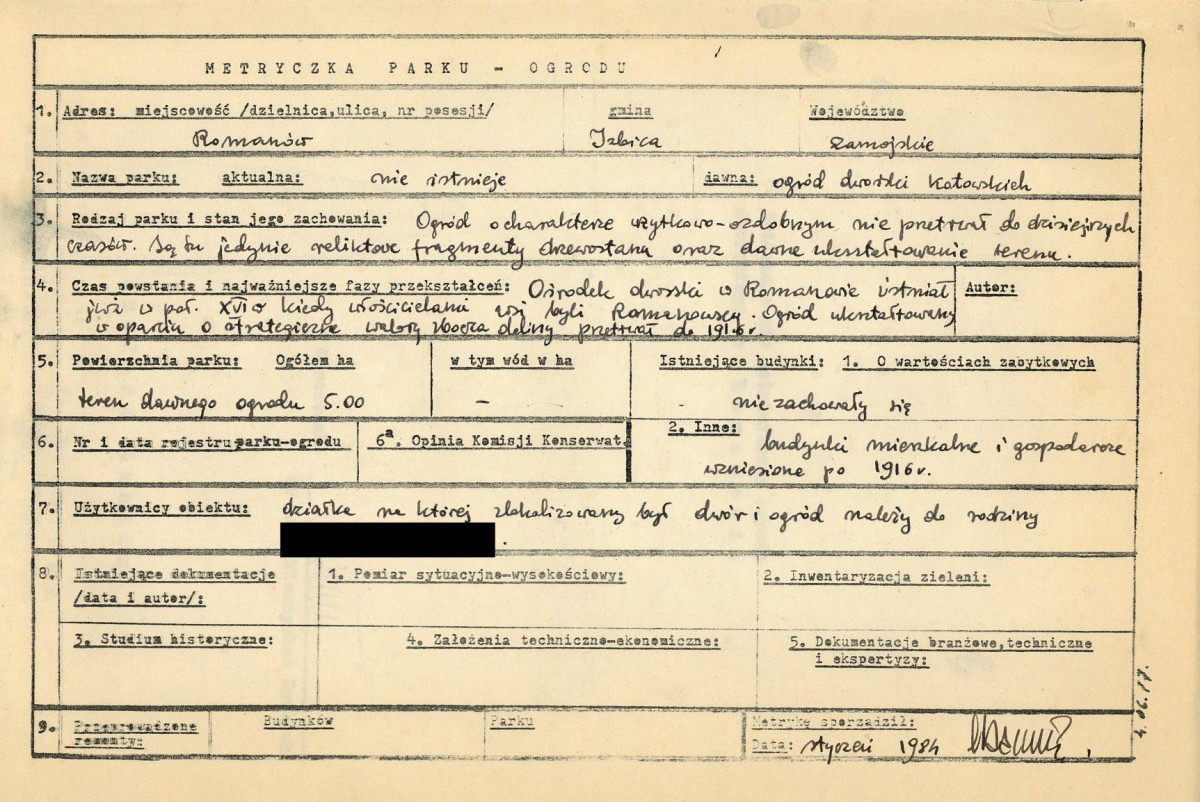 METRYCZKA PARKU - OGRODU
1. Adres: miejscowość /dzielnica,ulica, nr posesji/ gmina Województwo
Romanów Izbica zamojskie
2. Nazwa parku: aktualna: nie istnieje dawna: ogród dworski Kotowskich
3. Rodzaj parku i stan jego zachowania: Ogród o charakterze użytkowo-ozdobnym nie przetrwał do dzisiejszych
czasów. Są tu jedynie reliktowe fragmenty drzewostanu oraz dawne ukształtowanie terenu.
4. Czas powstania i najważniejsze fazy przekształceń: Ośrodek dworski w Romanowie istniał Autor:
już w poł. XVI w kiedy właścicielami wsi byli Romanowscy. Ogród ukształtowany
w oparciu o strategiczne walory zbocza doliny przetrwał do 1916 r.
5. Powierzchnia parku: Ogółem ha w tym wód w ha Istniejące budynki: 1. O wartościach zabytkowych
teren dawnego ogrodu 5.00 – nie zachowały się
6. Nr i data rejestru parku-ogrodu 6a. Opinia Komisji Konserwat. 2. Inne: budynki mieszkalne i gospodarcze
wzniesione po 1916 r.
7. Użytkownicy obiektu: działka na której zlokalizowany był dwór i ogród należy do rodziny
.
8. Istniejące dokumentacje 1. Pomiar sytuacyjno-wysokościowy: 2. Inwentaryzacja zieleni:
/data i autor/:
3. Studium historyczne: 4. Założenia techniczno-ekonomiczne: 5. Dokumentacje branżowe,techniczne
i ekspertyzy:
9. Przeprowadzone Budynków Parku Metrykę sporządził:
remonty: Data: styczeń 1984
4.06.87.